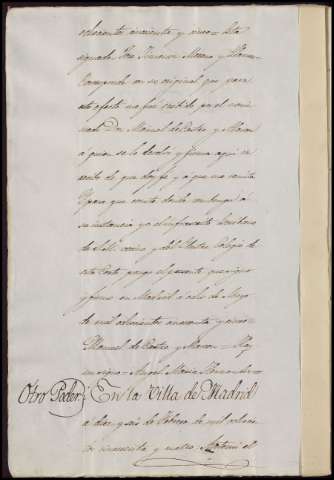 ochocientos cincuenta y cinco = Esta
signado = Don Francisco Moreno y
Corresponde con su original que para
este efecto me fué exhibido por el
Don Manuel de Castro y
á quien se lo devolví y firma aquí su
recibo de que doy fe y á que me remito
Y para que conste donde convenga á
su instancia yo el infrascrito Escribano
de S.M. vecino y del Ilustre Colegio de
esta Corte pongo el presente que signo
y firmo en Madrid á ocho de Mayo
de mil ochocientos cincuenta y cinco =
Manuel de Castro y
signo = Angel Maria
Otro Poder En la Villa de Madrid
á diez y seis de Febrero de mil ochocien
tos cincuenta y cuatro el